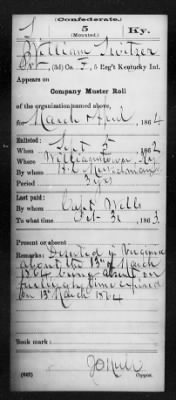 (Confederate.)
S. 5 Ky.
(Mounted.)
William Switzer
Pvt., (3d) Co. F, 5 Reg't Kentucky Inf.
Appears on
Company Muster Roll
of the organization named above,
for March & April, 1864
Enlisted:
When Sept 5, 1862
Where Williamstown, Ky
By whom
Period 3 yrs
Last paid:
By whom Capt Wells
To what time Oct 31, 1863
Present or absent
Remarks: Deserted
about the 13th of March
1864 being absent on
furlough, time expired
on 13 March 1864
Book mark:
(642)
Copyist.